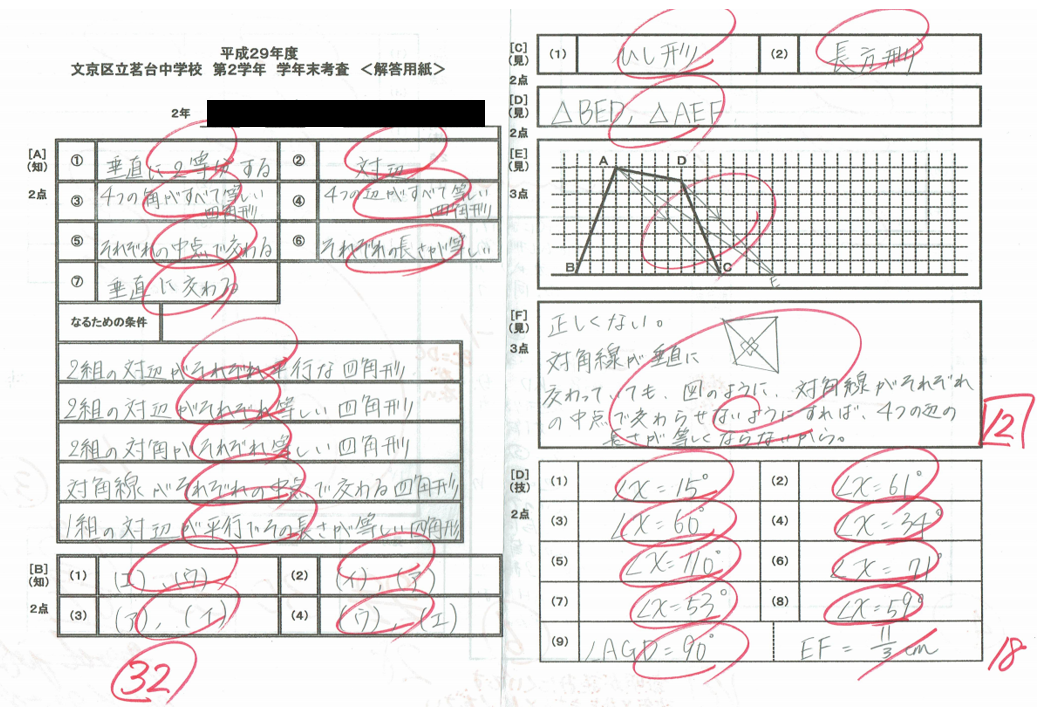 平成29年度
文京区立茗台中学校 第2学年 学年末考査 <解答用紙>
2年
[A]
(知)
2点
① 垂直に2等分する
② 対辺
③ 4つの角がすべて等しい
四角形
④ 4つの辺がすべて等しい
四角形
⑤ それぞれの中点で交わる
⑥ それぞれの長さが等しい
⑦ 垂直に交わる
なるための条件
2組の対辺がそれぞれ平行な四角形
2組の対辺がそれぞれ等しい四角形
2組の対角がそれぞれ等しい四角形
対角線がそれぞれの中点で交わる四角形
1組の対辺が平行でその長さが等しい四角形
[B]
(知)
2点
(1) (エ), (ウ)
(2) (イ), (ア)
(3) (ア), (イ)
(4) (ウ), (エ)
32
[C]
(見)
2点
(1) ひし形
(2) 長方形
[D]
(見)
2点
△BED, △AEF
[E]
(見)
3点
A D
B C E
[F]
(見)
3点
正しくない。
対角線が垂直に
交わっていても、図のように、対角線がそれぞれ
の中点で交わらせないようにすれば、4つの辺の
長さが等しくならないから。
12
[D]
(技)
2点
(1) ∠X=15°
(2) ∠X=61°
(3) ∠X=60°
(4) ∠X=34°
(5) ∠X=110°
(6) ∠X=71°
(7) ∠X=53°
(8) ∠X=59°
(9) ∠AGD=90° EF=11/3cm
18